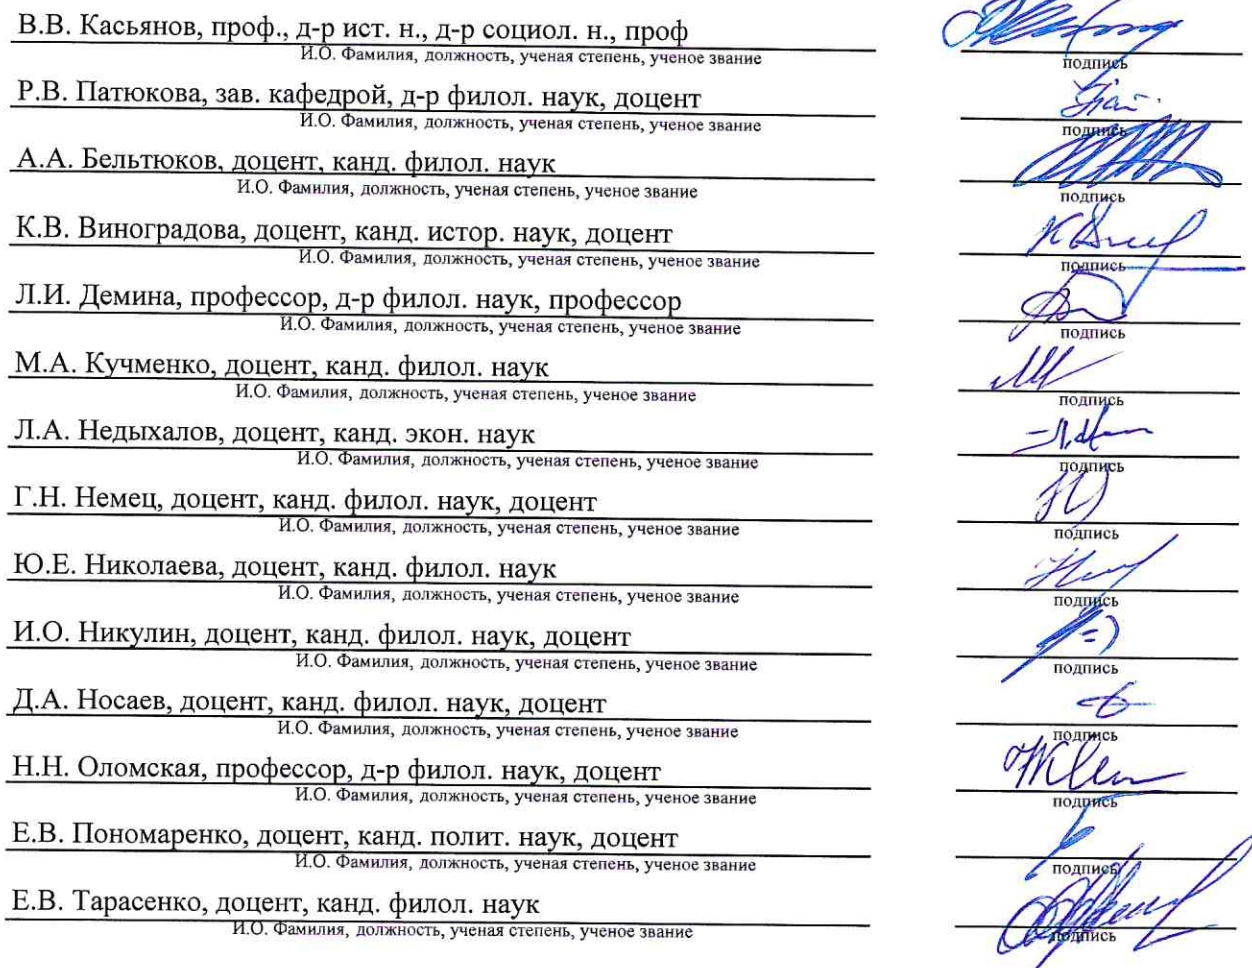 В.В. Касьянов, проф., д-р ист. н., д-р социол. н., проф
И.О. Фамилия, должность, ученая степень, ученое звание
подпись
Р.В. Патюкова, зав. кафедрой, д-р филол. наук, доцент
И.О. Фамилия, должность, ученая степень, ученое звание
подпись
А.А. Бельтюков, доцент, канд. филол. наук
И.О. Фамилия, должность, ученая степень, ученое звание
подпись
К.В. Виноградова, доцент, канд. истор. наук, доцент
И.О. Фамилия, должность, ученая степень, ученое звание
подпись
Л.И. Демина, профессор, д-р филол. наук, профессор
И.О. Фамилия, должность, ученая степень, ученое звание
подпись
М.А. Кучменко, доцент, канд. филол. наук
И.О. Фамилия, должность, ученая степень, ученое звание
подпись
Л.А. Недыхалов, доцент, канд. экон. наук
И.О. Фамилия, должность, ученая степень, ученое звание
подпись
Г.Н. Немец, доцент, канд. филол. наук, доцент
И.О. Фамилия, должность, ученая степень, ученое звание
подпись
Ю.Е. Николаева, доцент, канд. филол. наук
И.О. Фамилия, должность, ученая степень, ученое звание
подпись
И.О. Никулин, доцент, канд. филол. наук, доцент
И.О. Фамилия, должность, ученая степень, ученое звание
подпись
Д.А. Носаев, доцент, канд. филол. наук, доцент
И.О. Фамилия, должность, ученая степень, ученое звание
подпись
Н.Н. Оломская, профессор, д-р филол. наук, доцент
И.О. Фамилия, должность, ученая степень, ученое звание
подпись
Е.В. Пономаренко, доцент, канд. полит. наук, доцент
И.О. Фамилия, должность, ученая степень, ученое звание
подпись
Е.В. Тарасенко, доцент, канд. филол. наук
И.О. Фамилия, должность, ученая степень, ученое звание
подпись